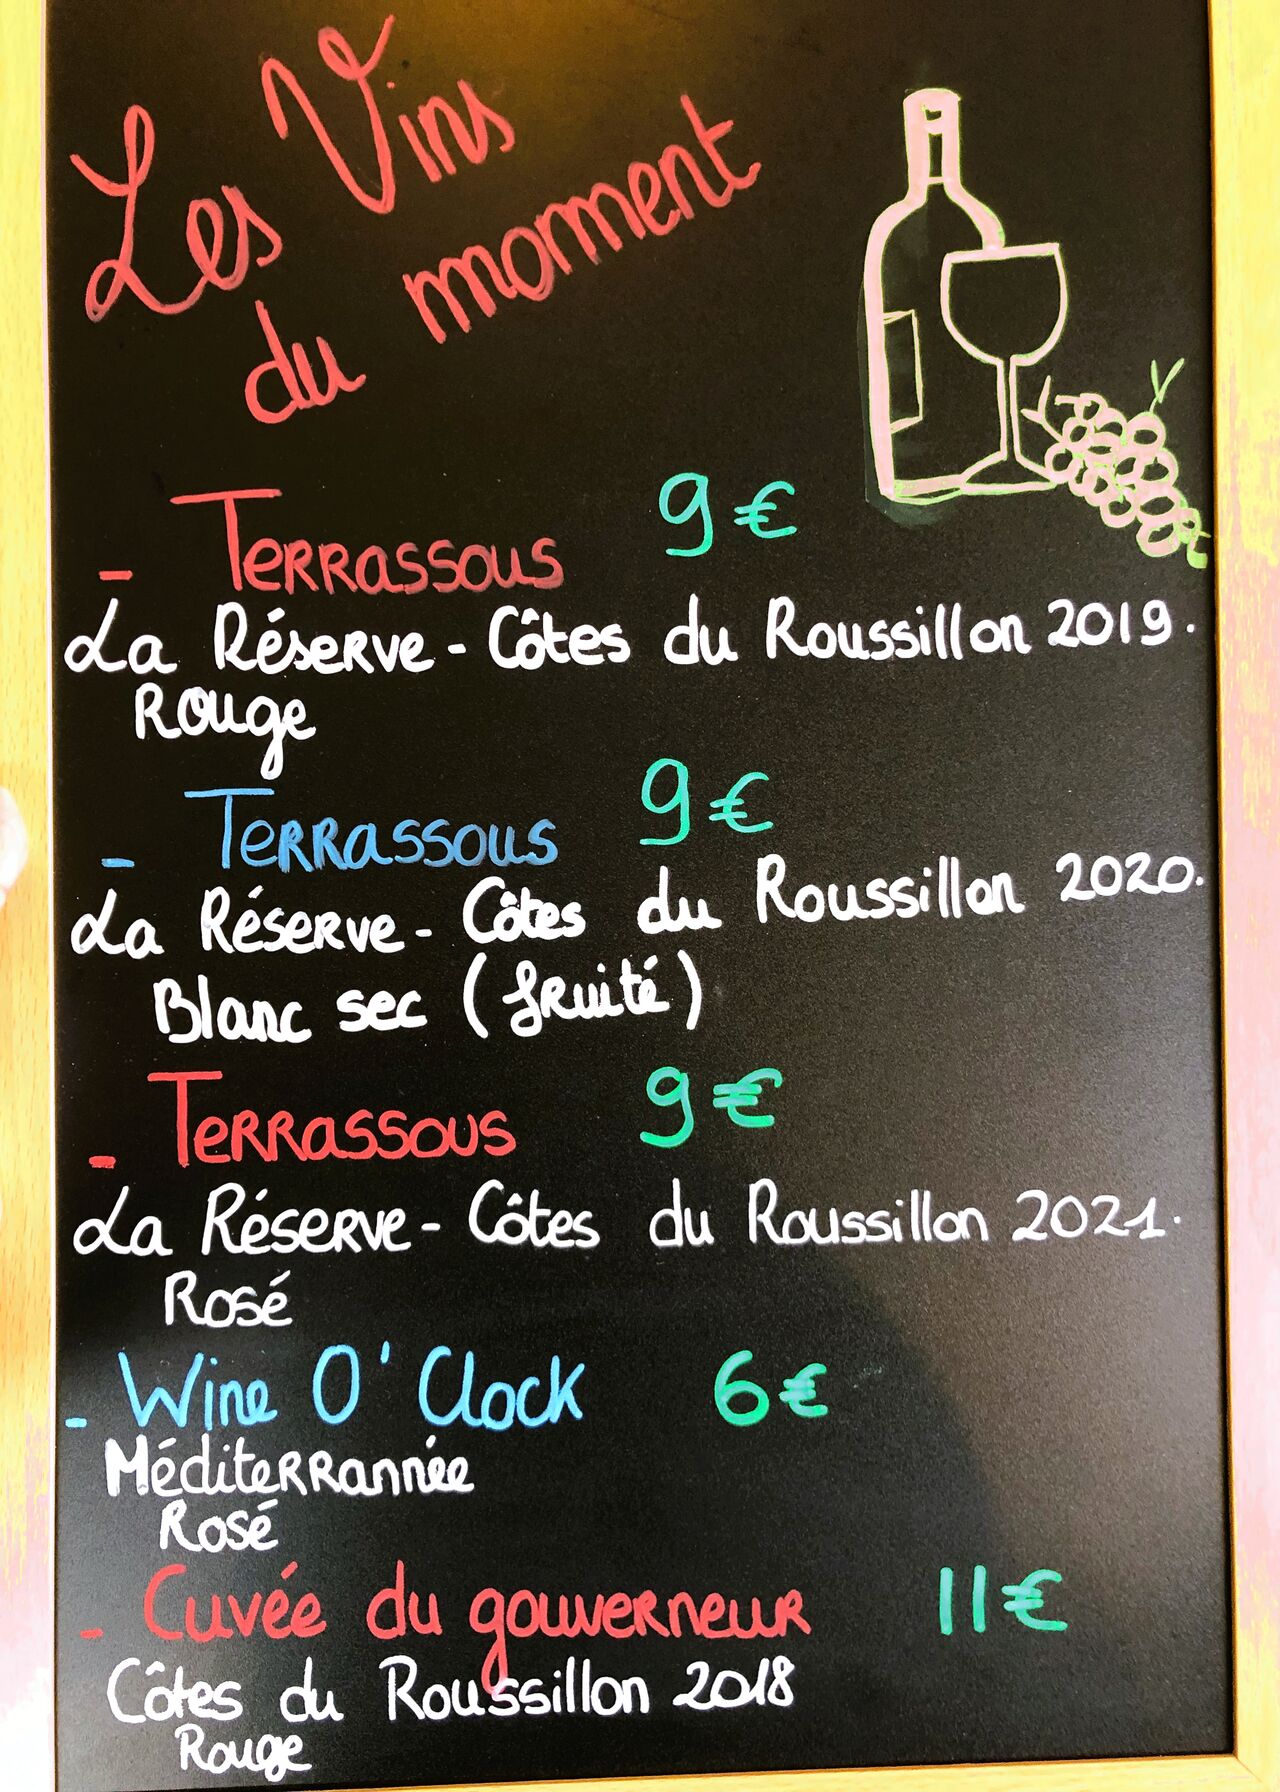 Les Vins
du moment
- Terrassous 9€
La Réserve - Côtes du Roussillon 2019.
Rouge
- Terrassous 9€
La Réserve - Côtes du Roussillon 2020.
Blanc sec (fruité)
- Terrassous 9€
La Réserve - Côtes du Roussillon 2021.
Rosé
- Wine O'Clock 6€
Méditerrannée
Rosé
- Cuvée du gouverneur 11€
Côtes du Roussillon 2018
Rouge